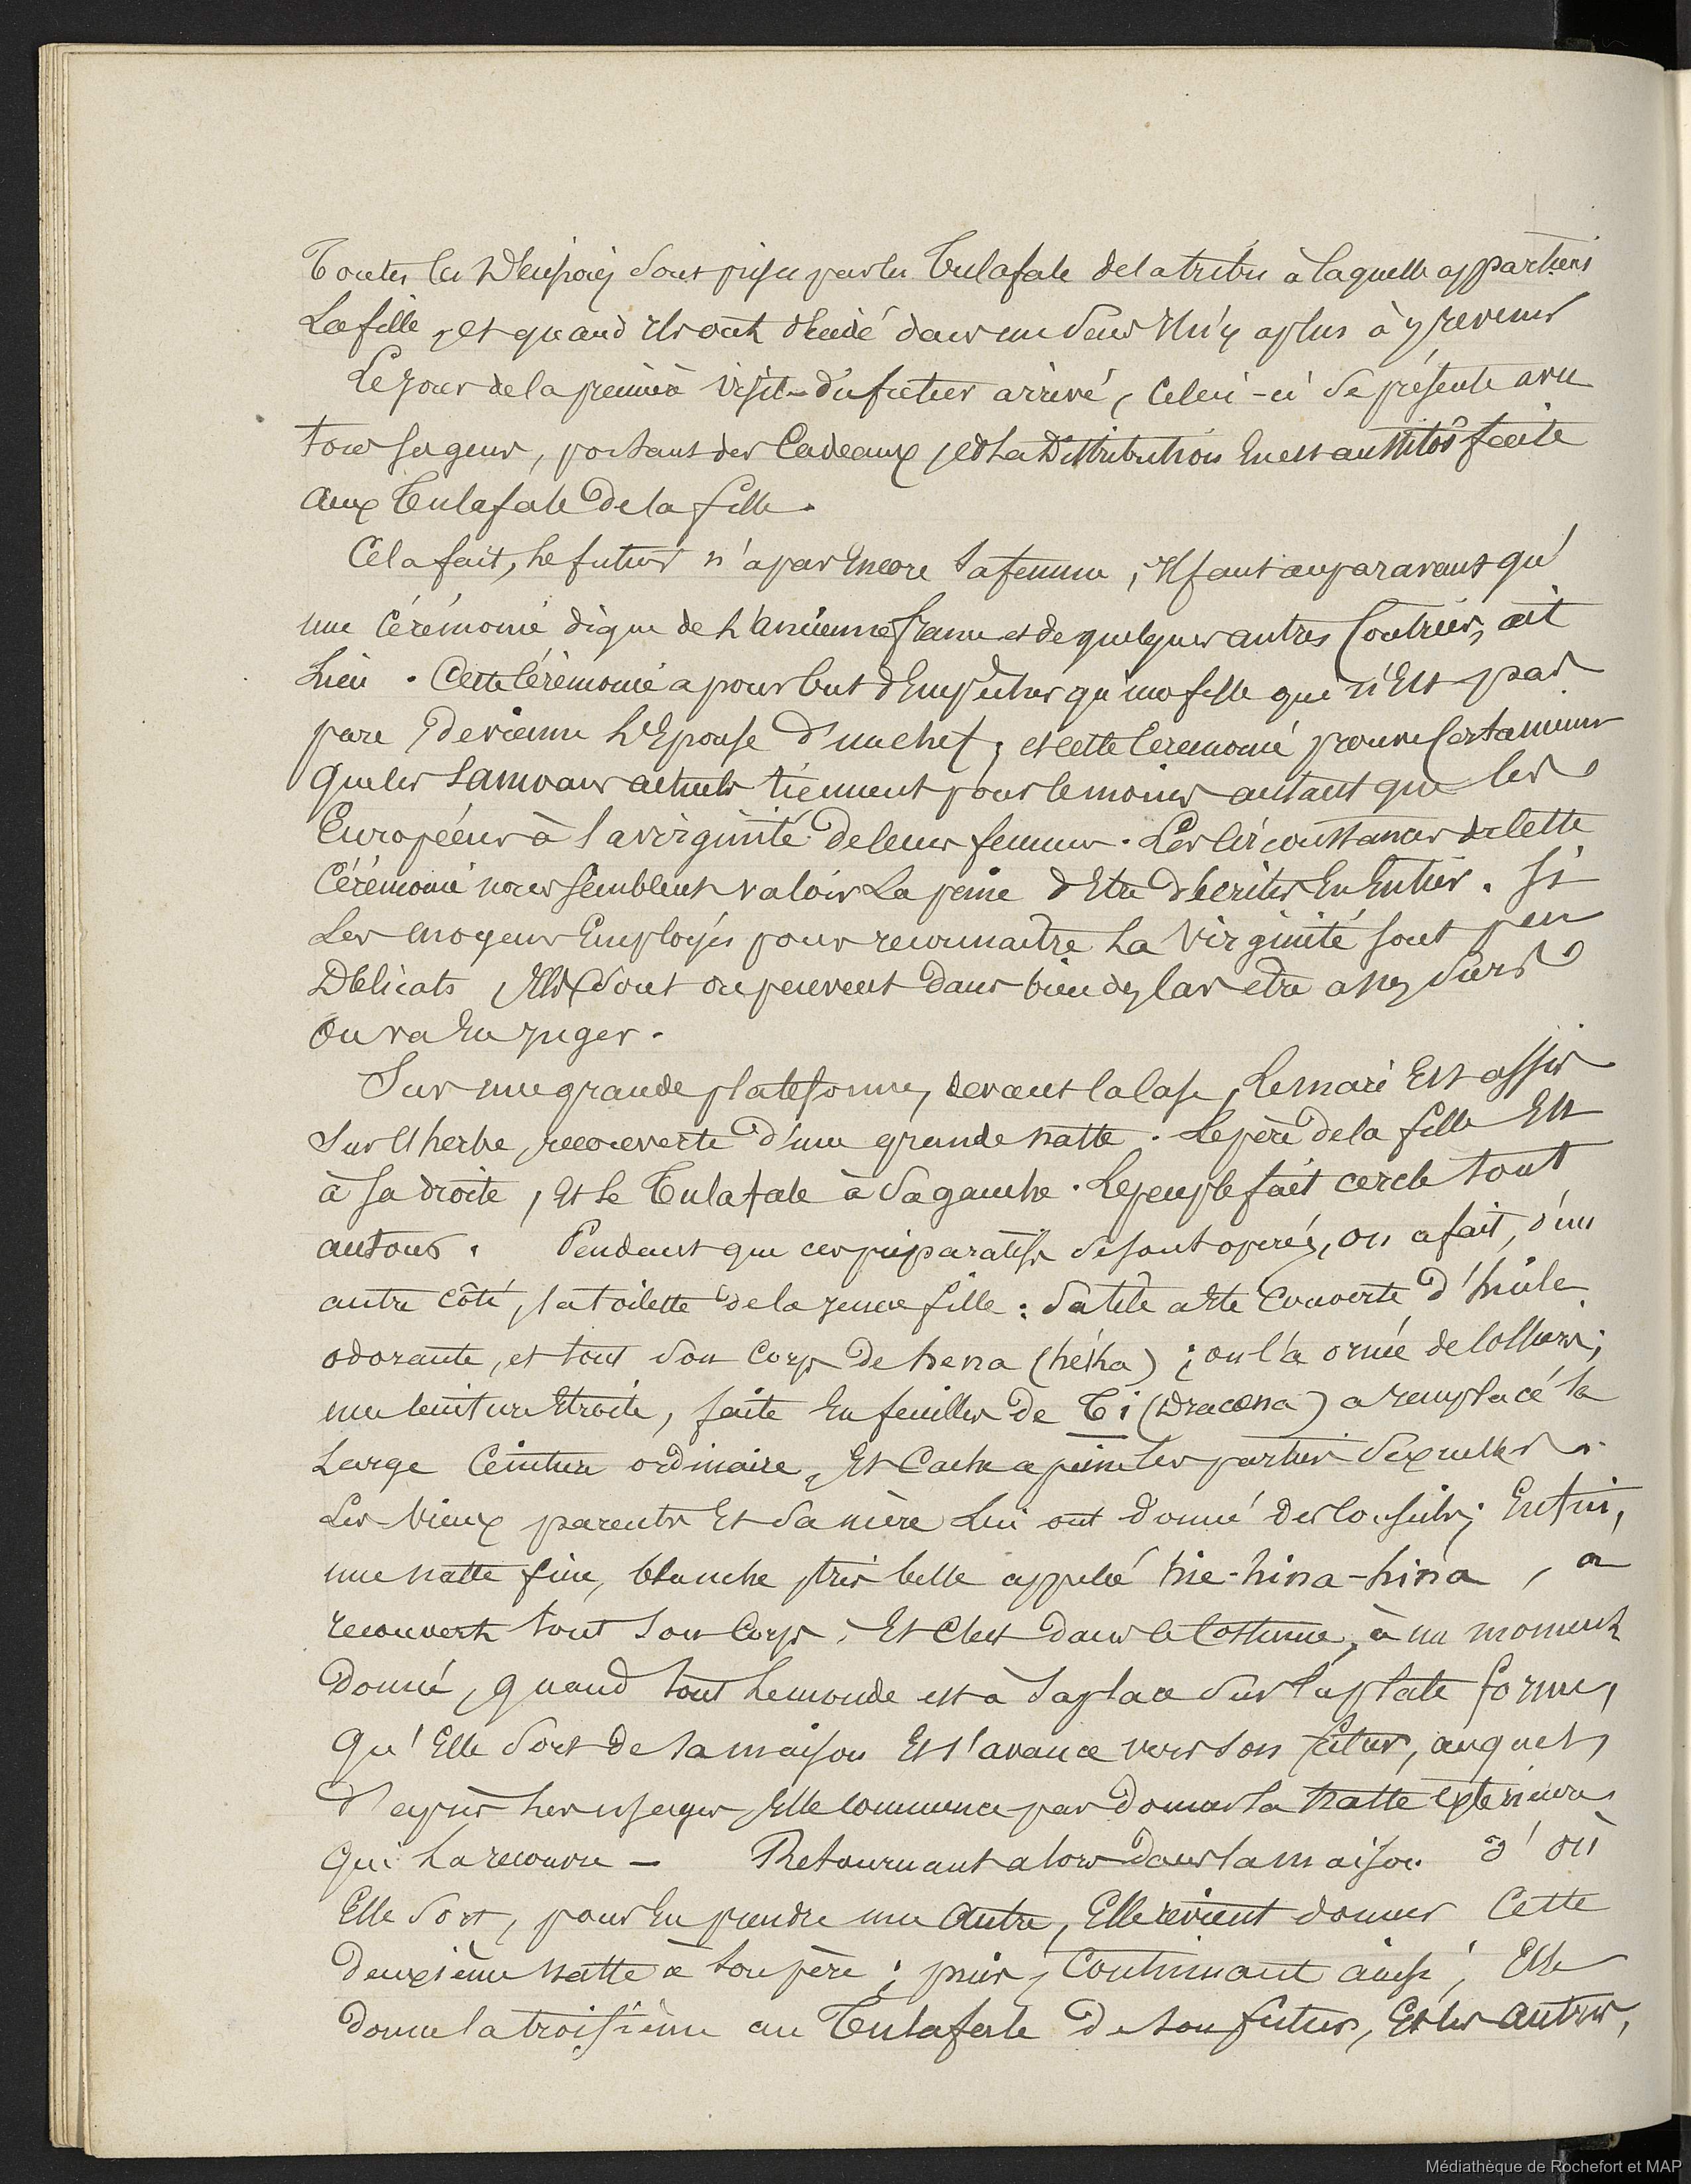 Toutes les Décisions sont prises par les Tulafale de la tribu à laquelle appartient
La fille, et quand ils ont décidé dans un sens Il n'y a plus à y revenir
Le jour de la première visite du futur arrivé, celui-ci se présente avec
tous ses gens, portant des Cadeaux, et La Distribution En est aussitôt faite
aux Tulafale De la fille.
Cela fait, Le futur n'a pas Encore sa femme, Il faut auparavant qu'
une Cérémonie digne de L'ancienne France et de quelques autres Contrées, ait
Lieu. Cette Cérémonie a pour but d'Empêcher qu'une fille qui n'Est pas
pure Devienne L'Epouse D'un chef; et cette Ceremonie prouve Certainement
que les Samoans actuels tiennent pour le moins autant que les
Européens à la virginité De leurs femmes. Les Circonstances de Cette
Cérémonie nous semblent valoir La peine d'Etre décrites En Entier. Si
Les moyens Employés pour reconnaitre La Virginité sont peu
Délicats, Ils sont ou peuvent Dans bien des Cas être assez sûrs
On va En juger.
Sur une grande plateforme, devant la Case, Le mari Est assis
Sur L'herbe, recouverte D'une grande natte. Le père de la fille Est
à sa droite, Et Le Tulafale à sa gauche. Le peuple fait cercle tout
autour. Pendant que ces préparatifs se sont operés, on a fait, d'un
autre côté, la toilette de la jeune fille: sa tête a Eté Couverte d'huile
odorante, et tout son Corps De hena (héha); on l'a ornée de Colliers;
une Ceinture Etroite, faite En feuilles de Ti (Dracœna) a remplacé la
Large Ceinture ordinaire, Et Cache a peine Les parties Sexuelles.
Les Vieux parents Et sa mère Lui ont donné des Conseils; Enfin,
une natte fine, blanche, très belle appelée hie-hina-hina, a
recouvert tout son Corps. Et C'est Dans Ce Costume, à un moment
Donné, quand tout Le monde est à sa place sur la plate forme,
Qu'Elle sort De la maison Et s'avance vers son futur, auquel,
D'après Les usages, Elle commence par Donner La Natte exterieure
qui La recouvre - Retournant alors Dans la maison d'où
Elle sort, pour En prendre une Autre, Elle revient donner Cette
Deuxième natte à Son père; puis, Continuant ainsi, Elle
donne la troisième au Tulafale De son futur, Et les autres,
Médiathèque de Rochefort et MAP